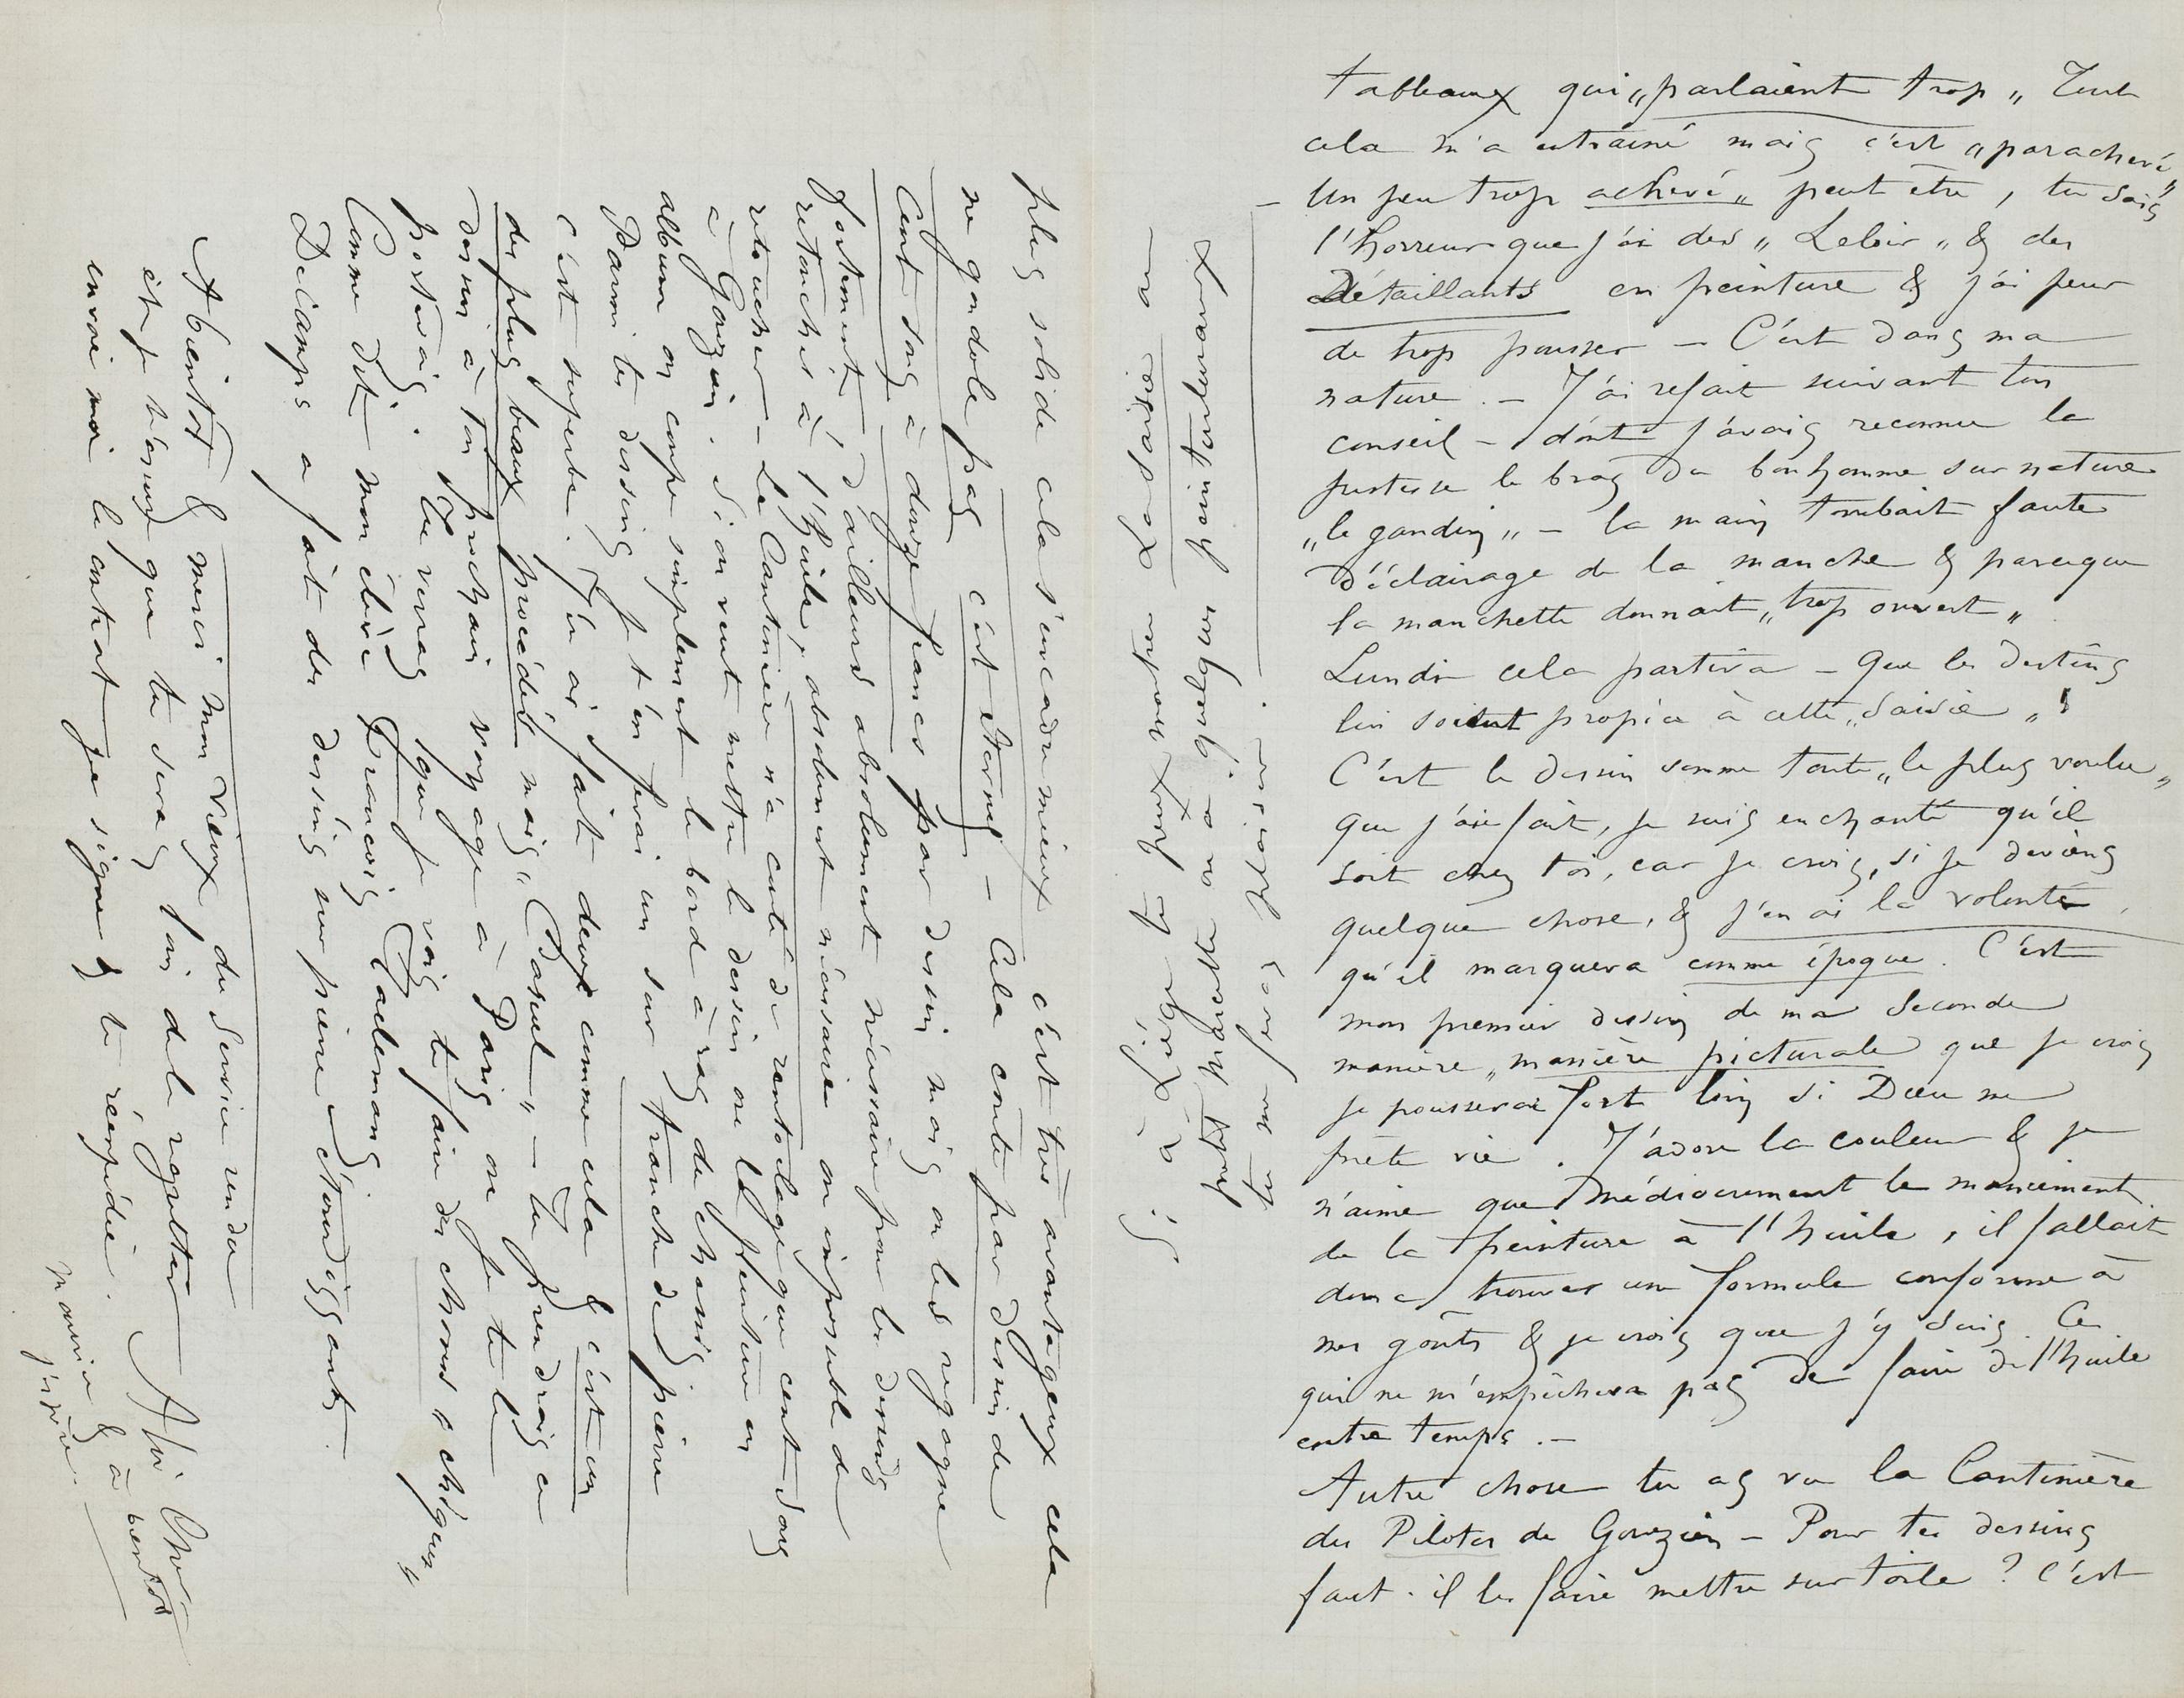 tableaux qui „parlaient trop „ Tout
cela m'a entrainé mais c'est „parachevé„
– Un peu trop achevé„ peut être, tu sais
l'horreur que j'ai des „ Leloir „ & des
Détaillants en peinture & j'ai peur
de trop pousser — C'est dans ma
nature. — J'ai refait suivant ton
conseil – dont j'avais reconnu la
justesse le bras du bonhomme sur nature
„le gandin„ – la main tombait faute
d'éclairage de la manche & parceque
la manchette donnait „trop ouvert„
Lundi cela partira – Que les destins
lui soient propice à cette „saisie„!
C'est le dessin somme toute „le plus voulu„
que j'aie fait, je suis enchanté qu'il
soit chez toi, car je crois, si je deviens
quelque chose, & j'en ai la volonté,
qu'il marquera comme époque. C'est
mon premier dessin de ma seconde
manière „manière picturale que je crois
je pousserai fort loin si Dieu me
prête vie. J'adore la couleur & je
n'aime que médiocrement le maniement
de la peinture à l'huile, il fallait
donc trouver une formule conforme à
mes goûts & je crois que j'y suis. Ce
qui ne m'empêchera pas de faire de l'huile
entre temps. —
Autre chose tu as vu la Cantinière
des Pilotes de Gouzien – Pour tes dessins
faut-il les faire mettre sur toile? C'est
plus solide cela s'encadre mieux c'est très avantageux cela
ne gondole pas c'est eternel – Cela coute par dessin de
Cent sous à douze francs par dessin mais on les regagne
fortement d'ailleurs absolument nécessaire pour les dessins
retouchés à l'huile, absolument nécessaire ou impossible de
retoucher – La Cantinière n'a couté de rentoilage que cent sous
à Gouzien. Si on veut mettre le dessin ou la peinture en
album on coupe simplement le bord à ras du chassis
Parmi tes dessins je t'en ferai un sur tranche de pierre
c'est superbe. J'en ai fait deux comme cela & c'est un
des plus beaux procédés mais „Casuel„ – Tu prendrais ce
dessin à ton prochain voyage à Paris ou je te le
porterais. Tu verras que je vais te faire des choses „chiques„
Comme dit mon élève François Taelemans
Decamps a fait des dessins sur pierre – étourdissants.
A bientôt & merci mon vieux du service rendu
et je t'assure que tu seras loin de le regretter
envoie moi le contrat je signe & te réexpédie.
Mon vieux & à bientôt
j'espère.
Si à Liège tu peux m'avoir Lassalle on
ta paresse on a quelques points lumineux
tu me feras plaisir.